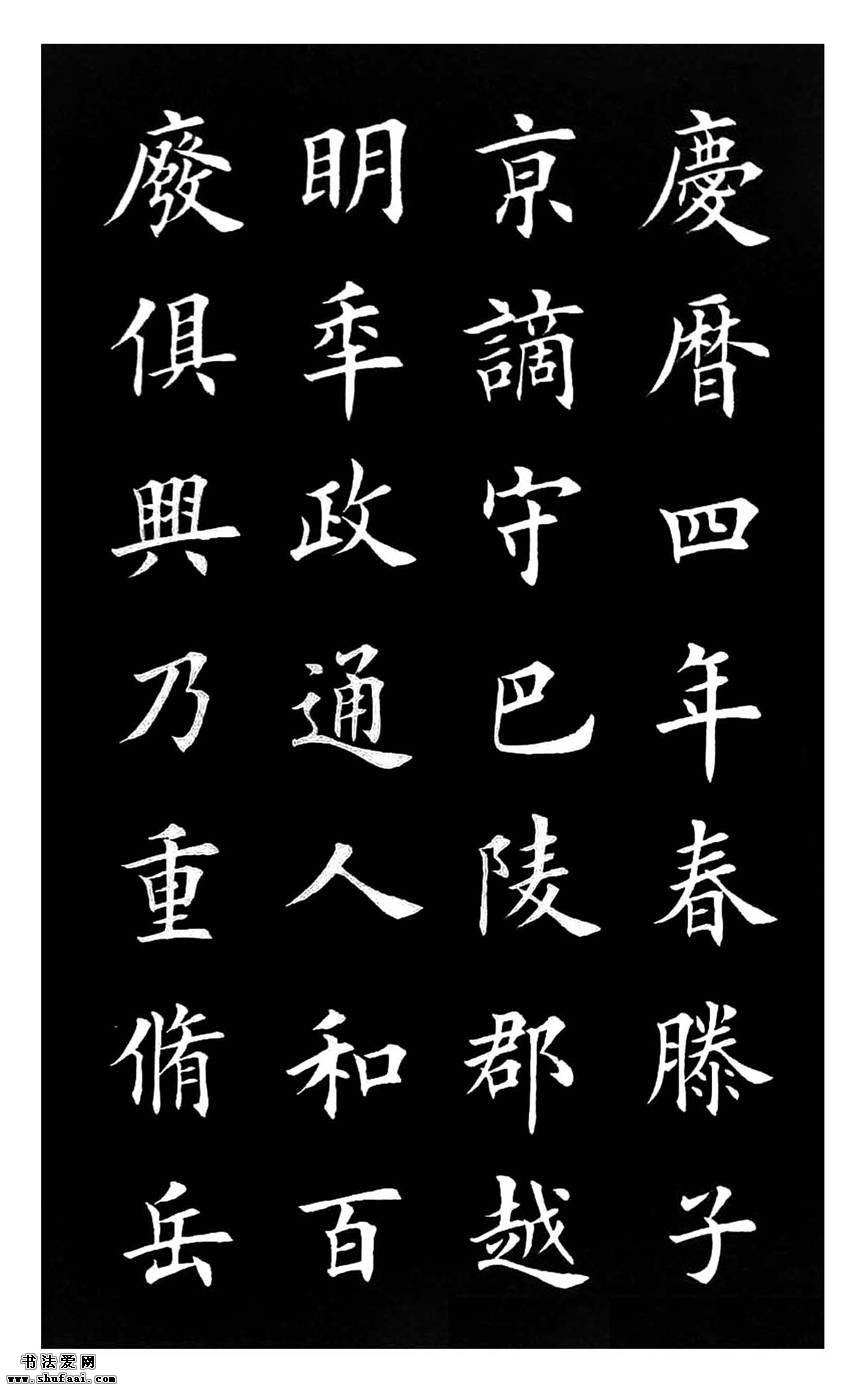 慶曆四年春滕子
京謫守巴陵郡越
明年政通人和百
廢俱興乃重脩岳
书法爱网
www.shufaai.com